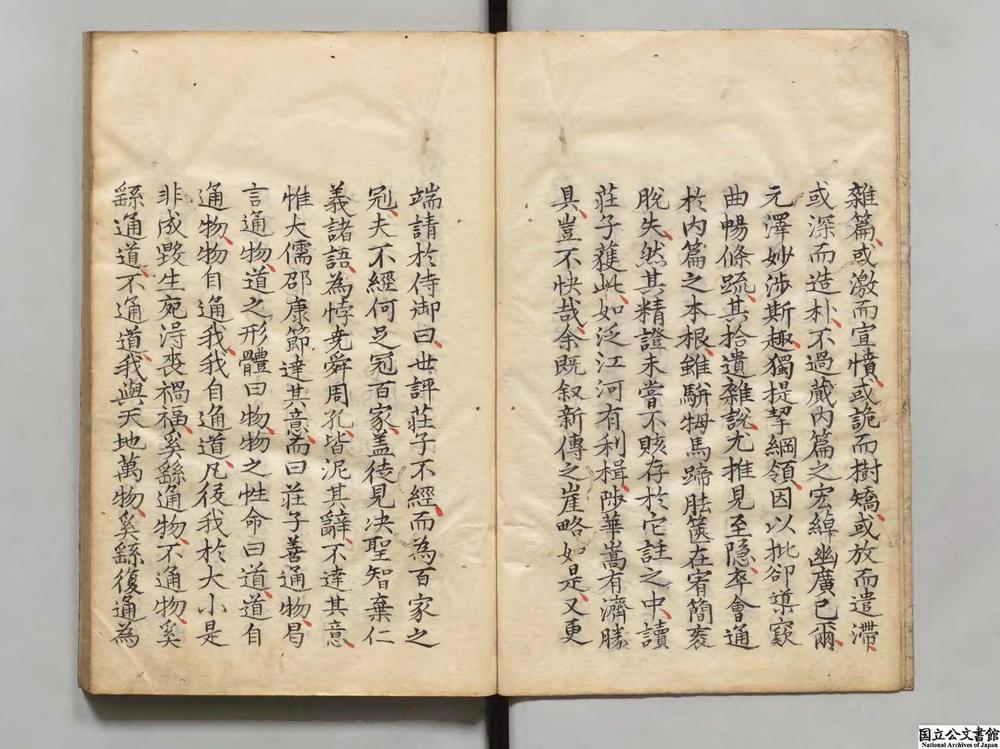 雜篇或激而宣憤或詭而樹矯或放而遣滯
或深而造朴不過蔵內篇之宏綽幽廣已爾
元澤妙渉斯趣獨提挈綱領因以批卻導窾
曲暢條疏其拾遺雜說尤推見至隱率會通
於內篇之本根雖駢拇馬蹄胠篋在宥簡袠
脫失然其精證未嘗不賅存於它註之中讀
莊子獲此如泛江河有利楫陟華嵩有濟勝
具豈不快哉余既叙新傳之崖略如是又更
端請於侍御曰世評莊子不經而為百家之
冠夫不經何足冠百家盖徒見决聖智棄仁
義諸語為悖堯舜周孔皆泥其辭不達其意
惟大儒邵康節達其意而曰莊子善通物曷
言通物道之形體曰物物之性命曰道道自
通物物自通我我自通道凡役我於大小是
非成毀生死得喪禍福奚繇通物不通物奚
繇通道不通道我與天地萬物奚繇復通為
国立公文書館
National Archives of Japan